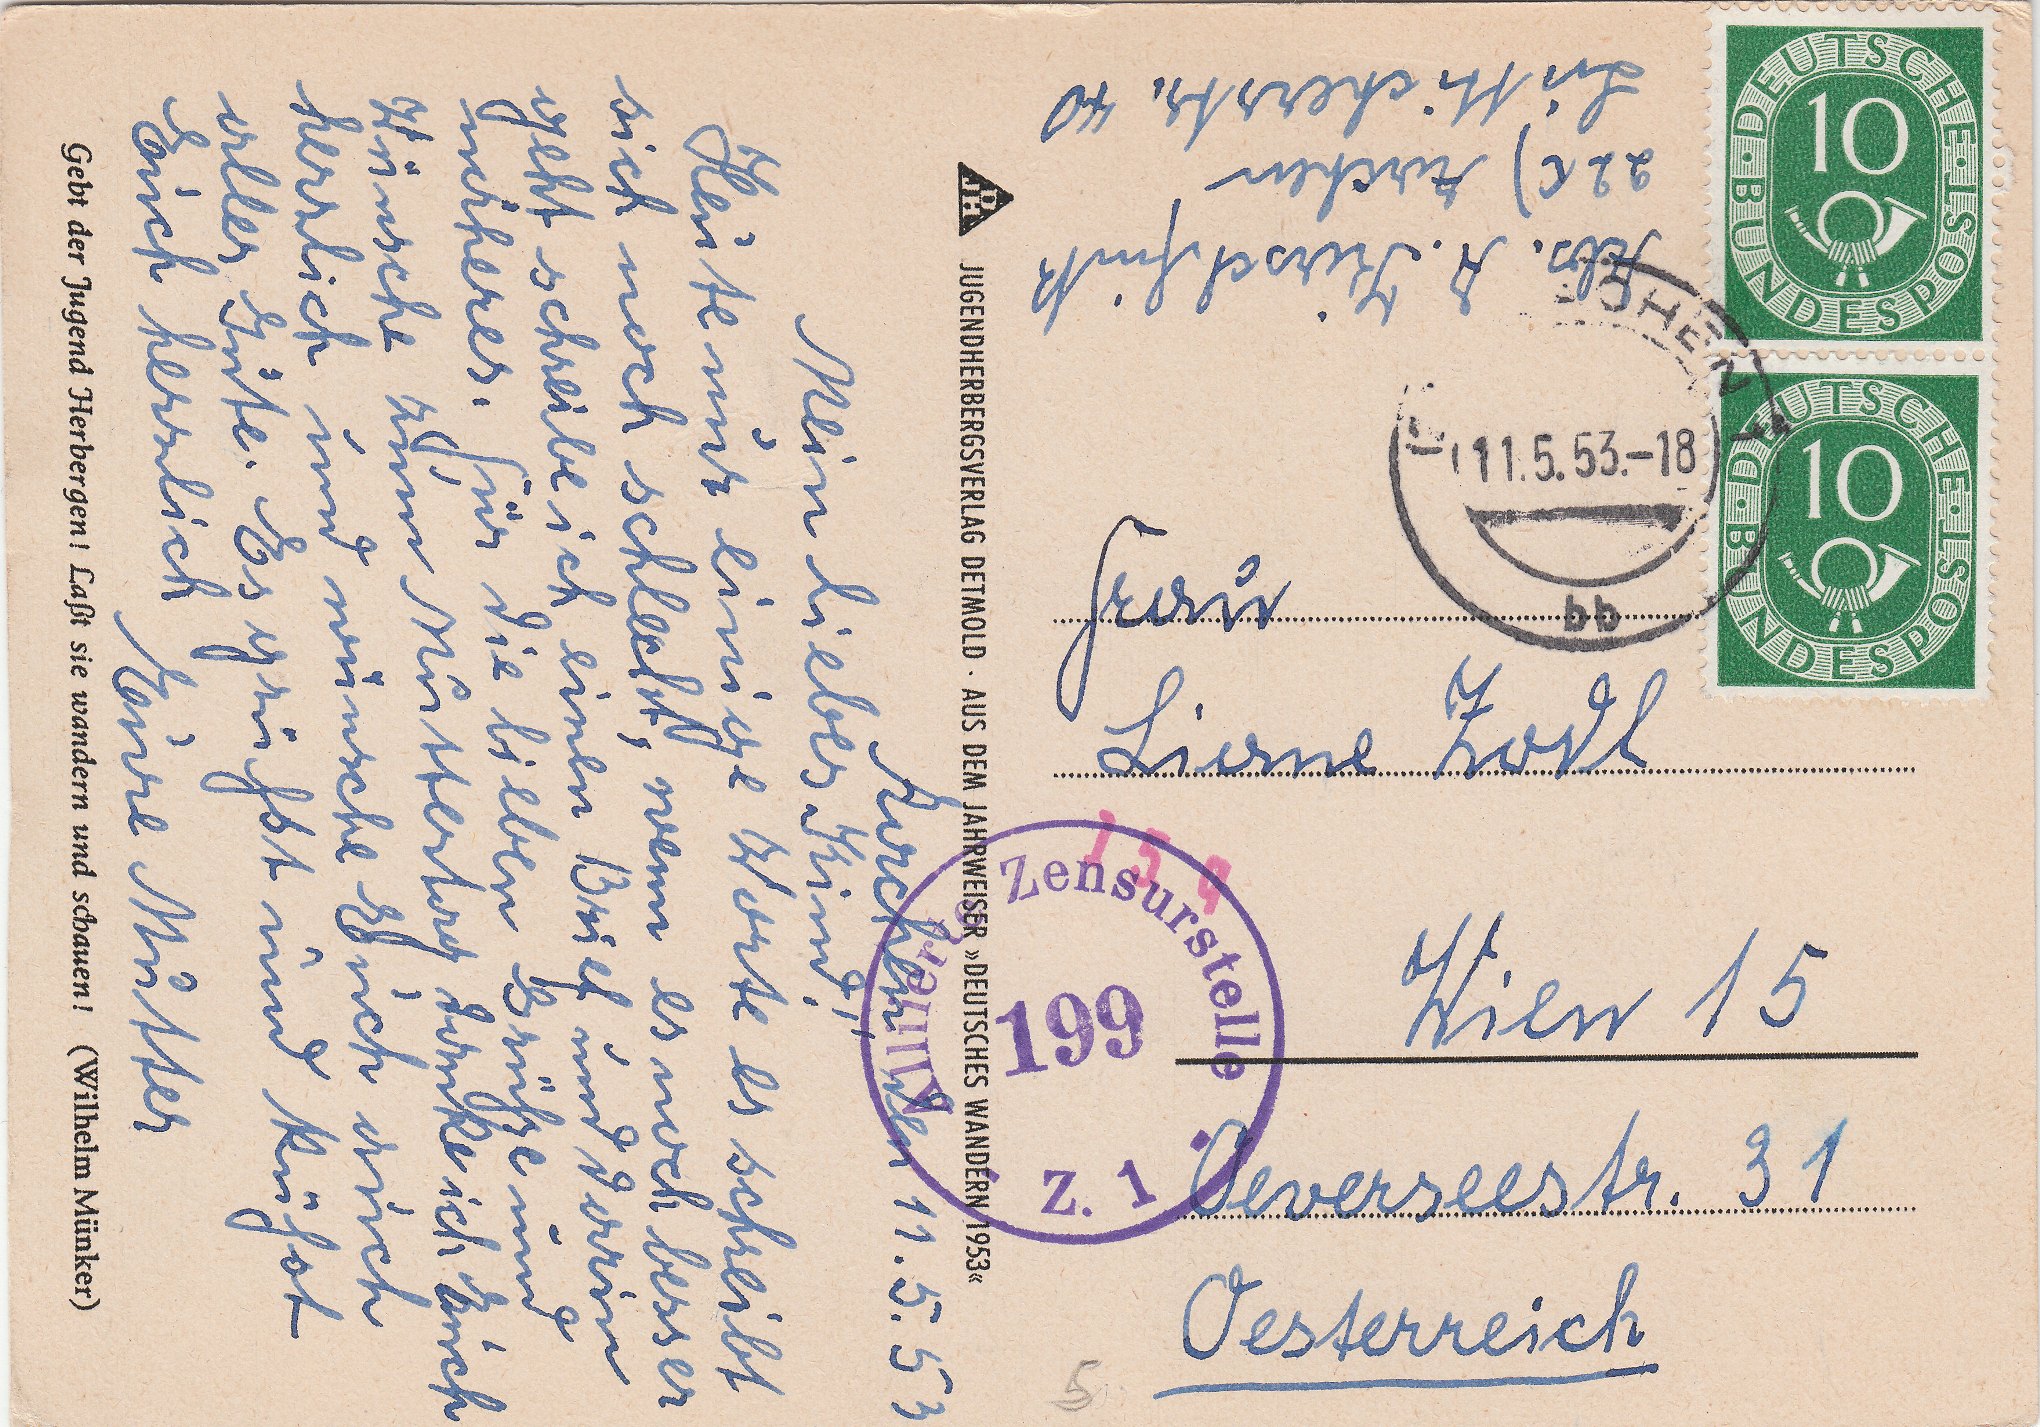 Aachen, den 11.5.53
Mein liebes Kind!
Heute nur einige Worte es schreibt
sich noch schlecht, wenn es noch besser
geht schreibe ich einen Brief und darin
näheres. Für die lieben Grüße und
Wünsche zum Muttertag danke ich Euch
herzlich und wünsche Euch auch
alles Gute. Es grüßt und küßt
Euch herzlich Eure Mutter
Gebt der Jugend Herbergen! Laßt sie wandern und schauen! (Wilhelm Münker)
JUGENDHERBERGSVERLAG DETMOLD · AUS DEM JAHRWEISER »DEUTSCHES WANDERN 1953«
Abs. A.
22c) Aachen
Lütticherstr. 40
DEUTSCHE BUNDESPOST
10
DEUTSCHE BUNDESPOST
10
AACHEN
11.5.53.-18
bb
Frau
Liane Zodl
Wien 15
Oeverseestr. 31
Oesterreich
Alliierte Zensurstelle
199
Z. 1
154
5